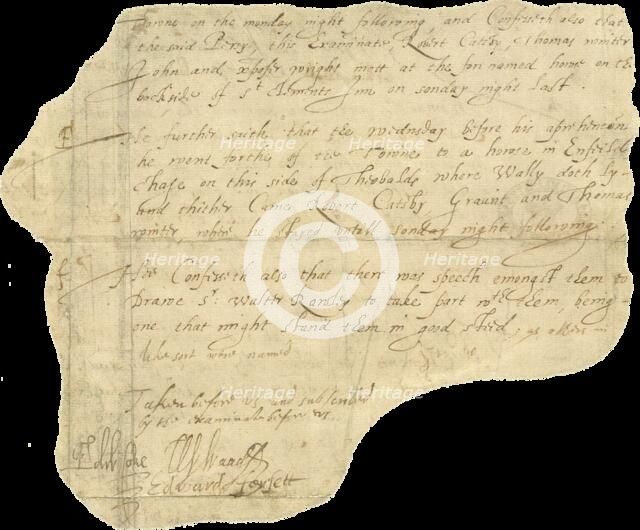 Towne on the monday night following and Confesseth also that
the said Percy, this Examinate, Robert Catsby, Thomas winter
John and wright mett at the fore named howse on the
backside of St Clements Inn on sonday night last.
He further saith that the wednsday before his aprehencion
he went forthe of the Towne to a howse in Enfeild
Chase on this side of Theobalds where Wally doth ly
and thither Came Robert Catsby Graunt and Thomas
winter where he stayed untill sonday night following.
Hee Confesseth also that there was speech emongst them to
Drawe Sr Walter Rawley to take part wth them, being
one that might stand them in good steed, as others in
like sort were named
Taken before us and subscribed
by the examinate before us
Edw Coke W Waad
Edward forsett
Heritage Images
Heritage Images
Heritage Images
Heritage
Heritage
Heritage
Heritage
Heritage
Heritage
©